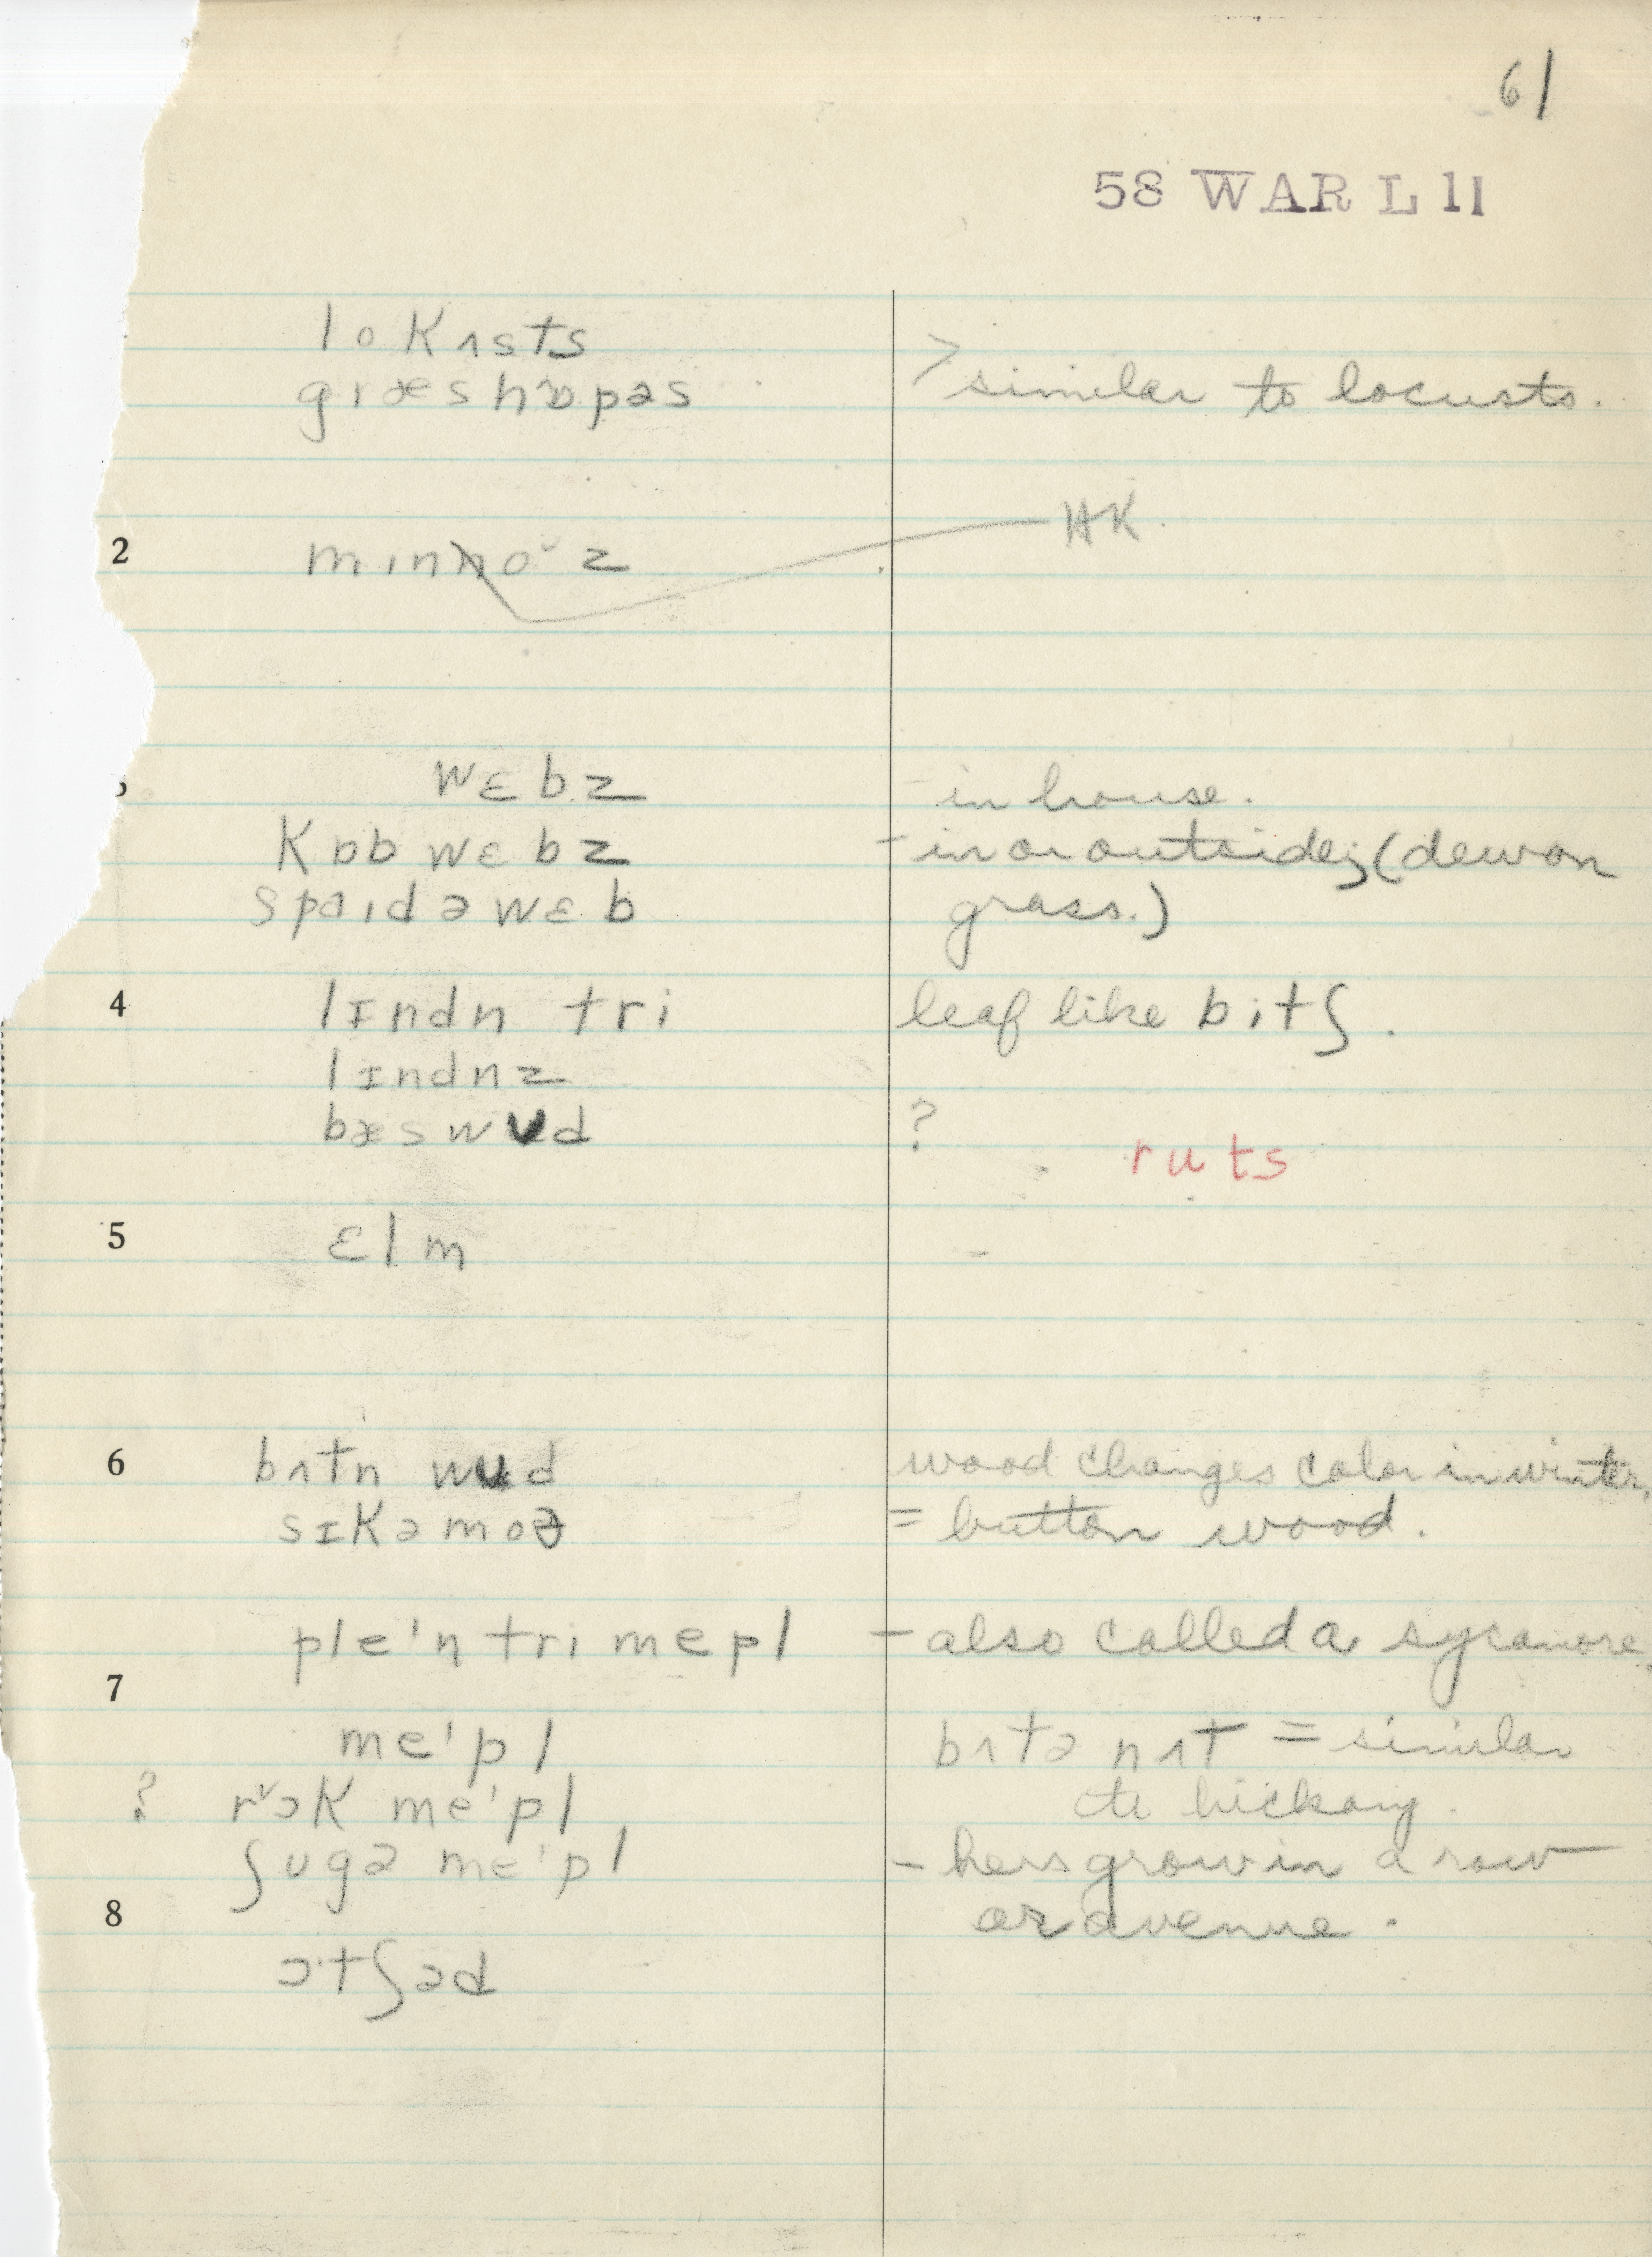 61
58 WAR L 11
lokʌsts
græshɒpəs > similar to locusts.
HK.
2 mɪnno˘z
wɛbz - in house.
kɒb wɛbz - in or outside; (dew on
spaɪdəwɛb grass.)
4 lɪndn tri leaf like bitʃ.
lɪndnz
bæswʊd ?
ruts
5 ɛlm
6 bʌtn wʊd wood changes color in winter.
sɪkəmoə = button wood.
ple'n tri mepl - also called a sycamore.
7
me'pl bʌtə nʌt = similar
? rɔ˅k me'pl to hickory.
ʃugə me'pl - hers grow in a row
8 or avenue.
ɔ·tʃəd